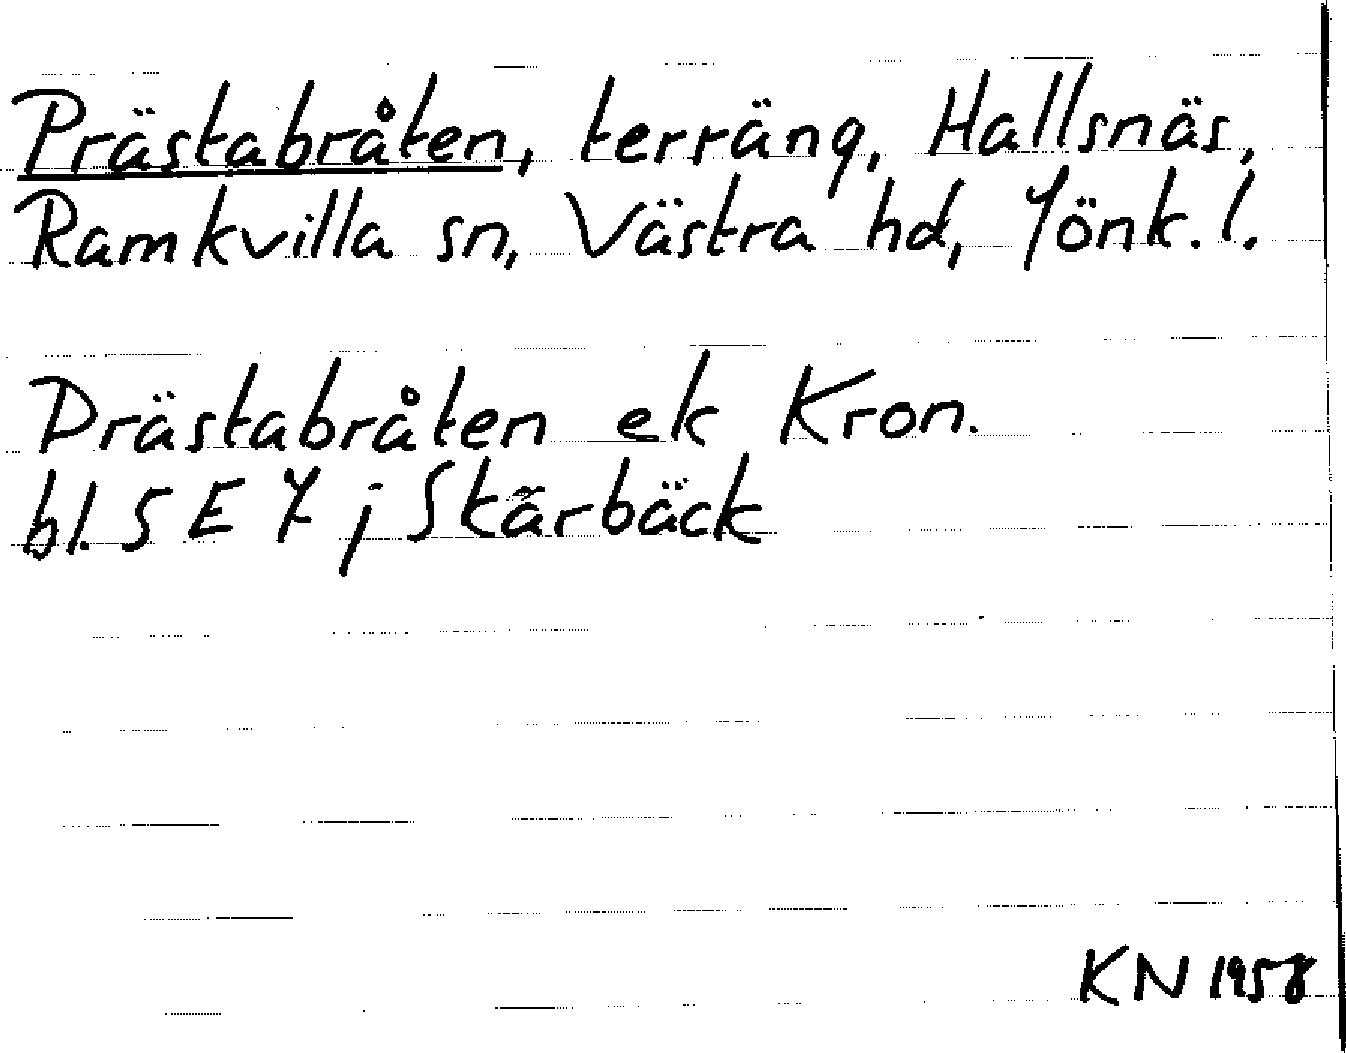 Prästabråten, terräng, Hallsnäs,
Ramkvilla sn, Västra hd, Jönk. l.
Prästabråten ek Kron.
bl. 5 E 7 j Skärbäck
KN 1958